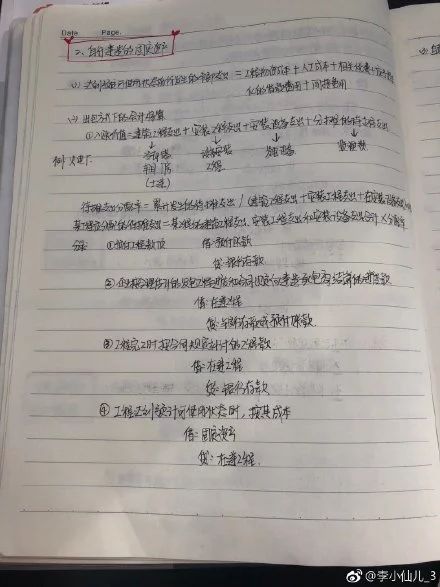 Date Page.
二、自行建造的固定资产
(1) 达到预定可使用状态前所发生的必要支出 = 工程物资成本 + 人工成本 + 相关税费 +
化的借款费用 + 间接费用
(2) 出包方式下的会计核算
①入账价值 = 建筑工程支出 + 安装工程支出 + 安装设备支出 + 分摊的待摊支出
例: 火电厂
冷却塔 设备安装 发电设备 监理费
厂房 工程
(土建)
待摊支出分摊率 = 累计发生的待摊支出 / (建筑工程支出 + 安装工程支出 + 在安装设备支出
某工程应分配的待摊支出 = 某工程的建筑工程支出、安装工程支出和安装设备支出合计 × 分摊率
分录: ①预付工程款项 借: 预付账款
贷: 银行存款
②企业按合理估计的发包工程进度和合同规定向建造承包商结算的进度款
借: 在建工程
贷: 银行存款或预付账款
③工程完工时按合同规定补付的工程款
借: 在建工程
贷: 银行存款
④工程达到预定可使用状态时, 按其成本
借: 固定资产
贷: 在建工程.
@李小仙儿_3